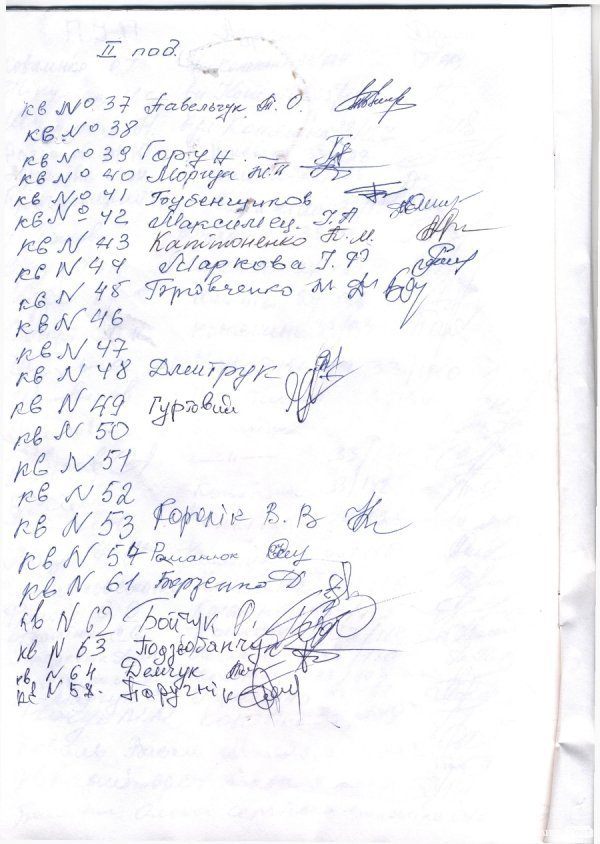 II под.
кв № 37 Павельчук Т. О.
кв № 38
кв № 39 Горун
кв № 40
кв № 41
кв № 42 Максимец. Г. А
кв N 43 Капітоненко П. М.
кв N 44 Маркова Г. Ф
кв N 45
кв N 46
кв N 47
кв N 48 Дмитрук
кв N 49 Гуртовий
кв N 50
кв N 51
кв N 52
кв N 53 В. В
кв N 54 Романюк
кв N 61
кв N 62 Бойчук Р.
кв N 63
кв N 64 Демчук
кв N 58. Паручнік